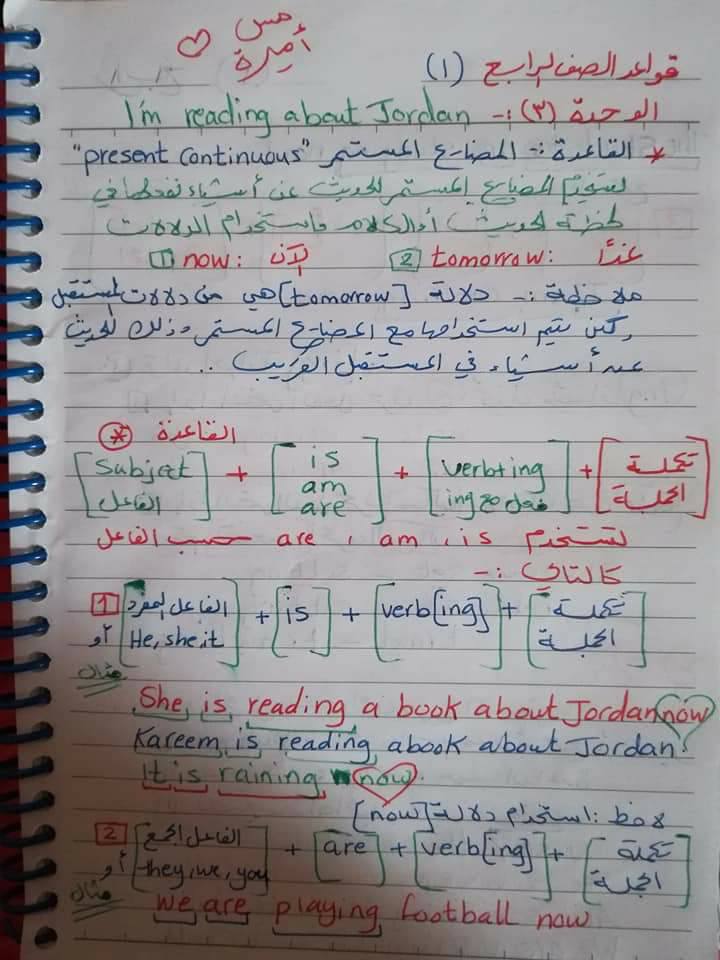 مس
أميرة ♡
قواعد الصف الرابع (١)
الوحدة (٣) :- I'm reading about Jordan
* القاعدة :- المضارع المستمر "present continuous"
نستخدم المضارع المستمر للحديث عن أشياء نفعلها في
لحظة الحديث أو الكلام باستخدام الدلالات
1 now: الآن 2 tomorrow: غداً
ملاحظة :- دلالة [tomorrow] هي من دلالات المستقبل
ولكن يتم استخدامها مع المضارع المستمر وذلك للحديث
عن أشياء في المستقبل القريب ..
* القاعدة
[Subject الفاعل] + [is am are] + [verb+ing فعل مع ing] + [تكملة الجملة]
نستخدم is ، am ، are حسب الفاعل
كالتالي :-
1 [الفاعل المفرد أو He, she, it] + [is] + [verb[ing]] + [تكملة الجملة]
مثال
She is reading a book about Jordan now
Kareem is reading abook about Jordan.
It is raining now.
لاحظ : استخدام دلالة [now]
2 [الفاعل الجمع أو they, we, you] + [are] + [verb[ing]] + [تكملة الجملة]
مثال
we are playing football now